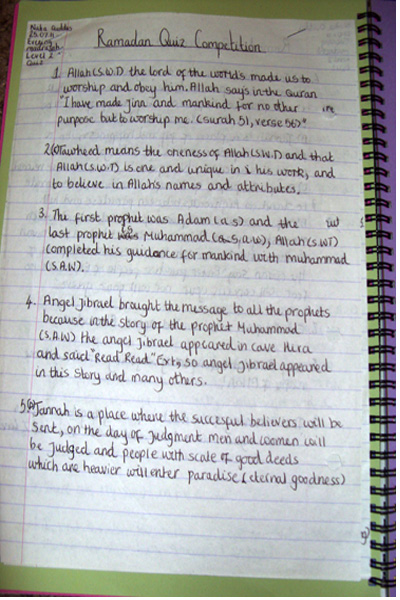 Ramadan Quiz Competition
Level 2
1. Allah (S.W.T) the lord of the world's made us to
worship and obey him. Allah says in the Quran
"I have made Jinn and mankind for no other
purpose but to worship me. (surah 51, verse 56)"
Tawheed means the oneness of Allah (S.W.T) and that
Allah (S.W.T) is one and unique in his work, and
to believe in Allah's names and attributes.
3. The first prophet was Adam (a.s) and the
last prophet was Muhammad (S.A.W), Allah (S.W.T)
completed his guidance for mankind with muhammad
(S.A.W).
4. Angel Jibrael brought the message to all the prophets
because in the story of the prophet Muhammad
(S.A.W) the angel jibrael appeared in cave Hira
and said "Read Read" Ext, so angel jibrael appeared
in this story and many others.
Jannah is a place where the succesful believers will be
sent, on the day of judgment men and women will
be judged and people with scale of good deeds
which are heavier will enter paradise (eternal goodness)